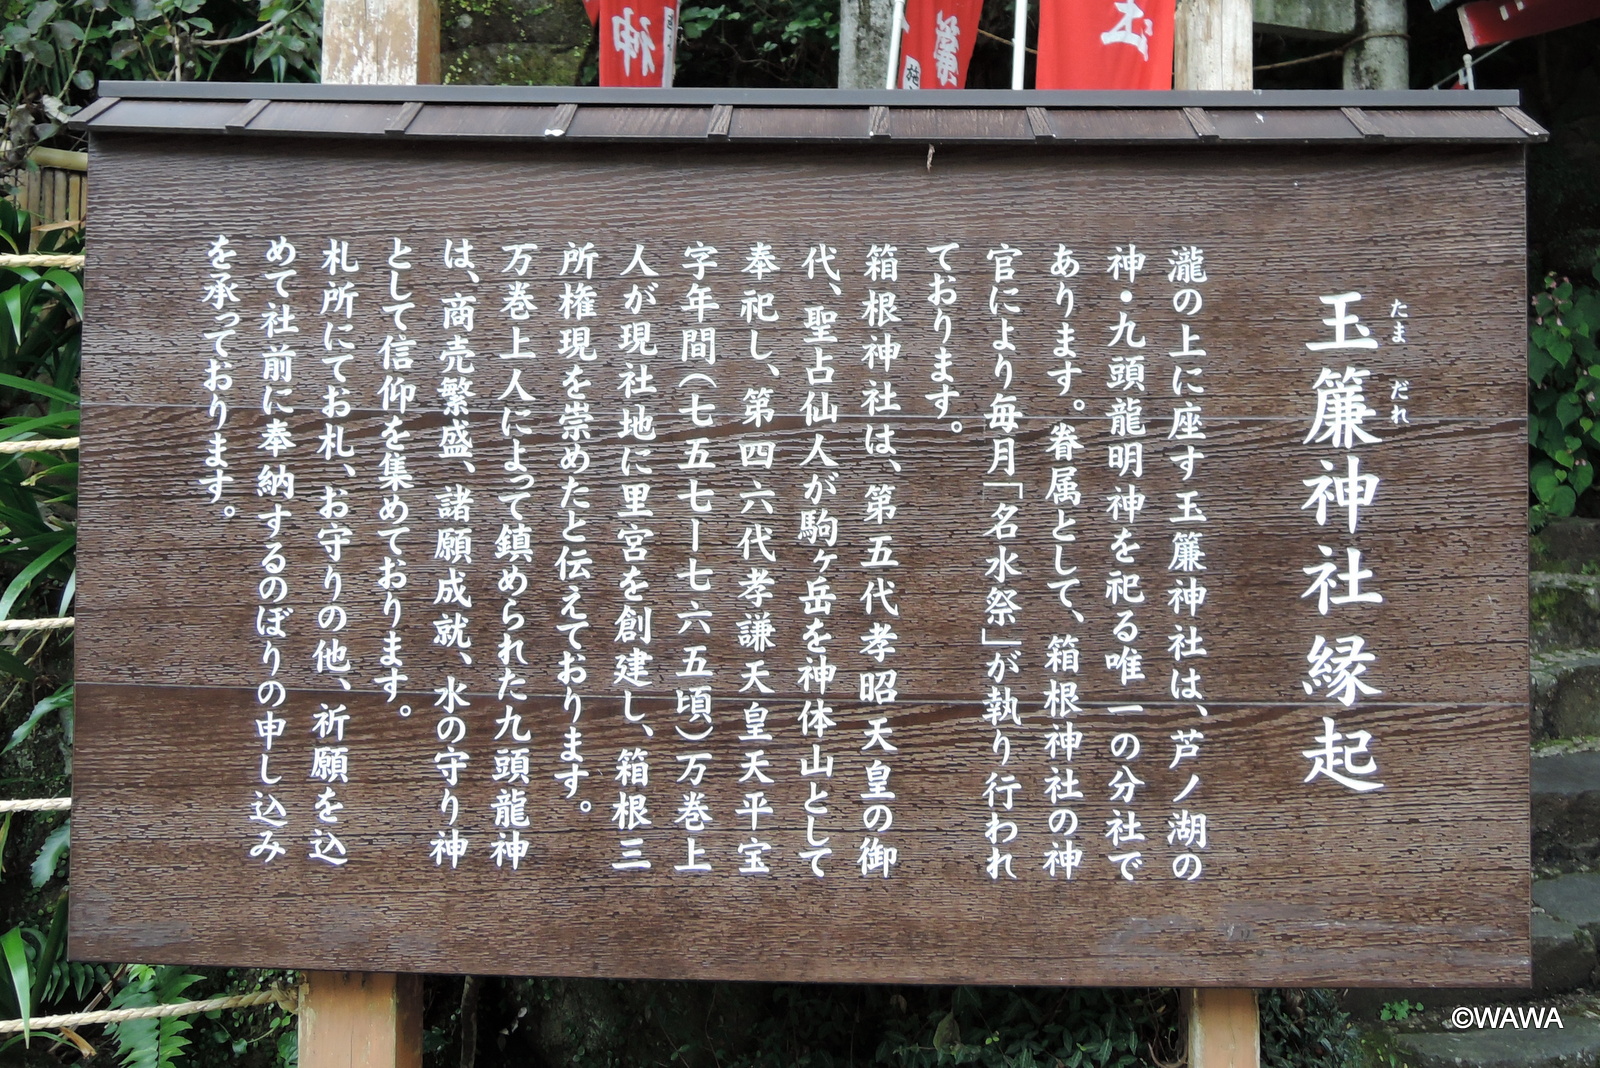 玉簾神社縁起
たま だれ
瀧の上に座す玉簾神社は、芦ノ湖の
神・九頭龍明神を祀る唯一の分社で
あります。眷属として、箱根神社の神
官により毎月「名水祭」が執り行われ
ております。
箱根神社は、第五代孝昭天皇の御
代、聖占仙人が駒ヶ岳を神体山として
奉祀し、第四六代孝謙天皇天平宝
字年間(七五七ー七六五頃)万巻上
人が現社地に里宮を創建し、箱根三
所権現を崇めたと伝えております。
万巻上人によって鎮められた九頭龍神
は、商売繁盛、諸願成就、水の守り神
として信仰を集めております。
札所にてお札、お守りの他、祈願を込
めて社前に奉納するのぼりの申し込み
を承っております。
神
簾
社
©WAWA